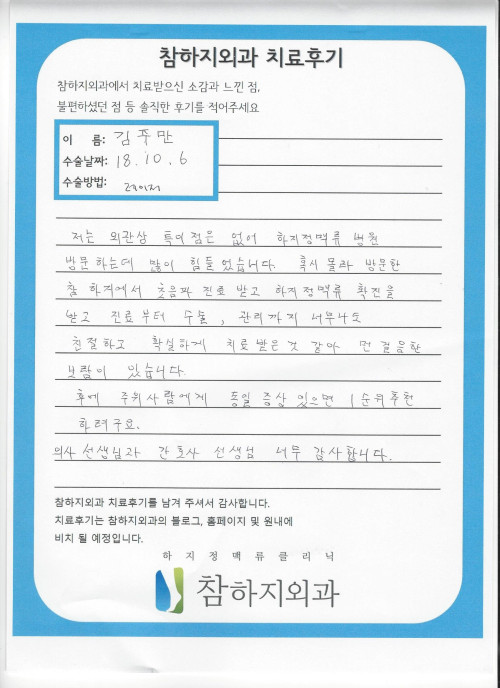 참하지외과 치료후기
참하지외과에서 치료받으신 소감과 느낀 점,
불편하셨던 점 등 솔직한 후기를 적어주세요
이 름: 김주만
수술날짜: 18.10.6
수술방법: 레이저
저는 외관상 특이점은 없어 하지정맥류 병원
방문하는데 많이 힘들었습니다. 혹시 몰라 방문한
참 하지에서 초음파 진료 받고 하지정맥류 확진을
받고 진료부터 수술, 관리까지 너무나도
친절하고 확실하게 치료 받은것 같아 먼 걸음한
보람이 있습니다.
후에 주위사람에게 동일 증상 있으면 1순위추천
하려구요.
의사 선생님과 간호사 선생님 너무 감사합니다.
참하지외과 치료후기를 남겨 주셔서 감사합니다.
치료후기는 참하지외과의 블로그, 홈페이지 및 원내에
비치 될 예정입니다.
하지정맥류클리닉
참하지외과